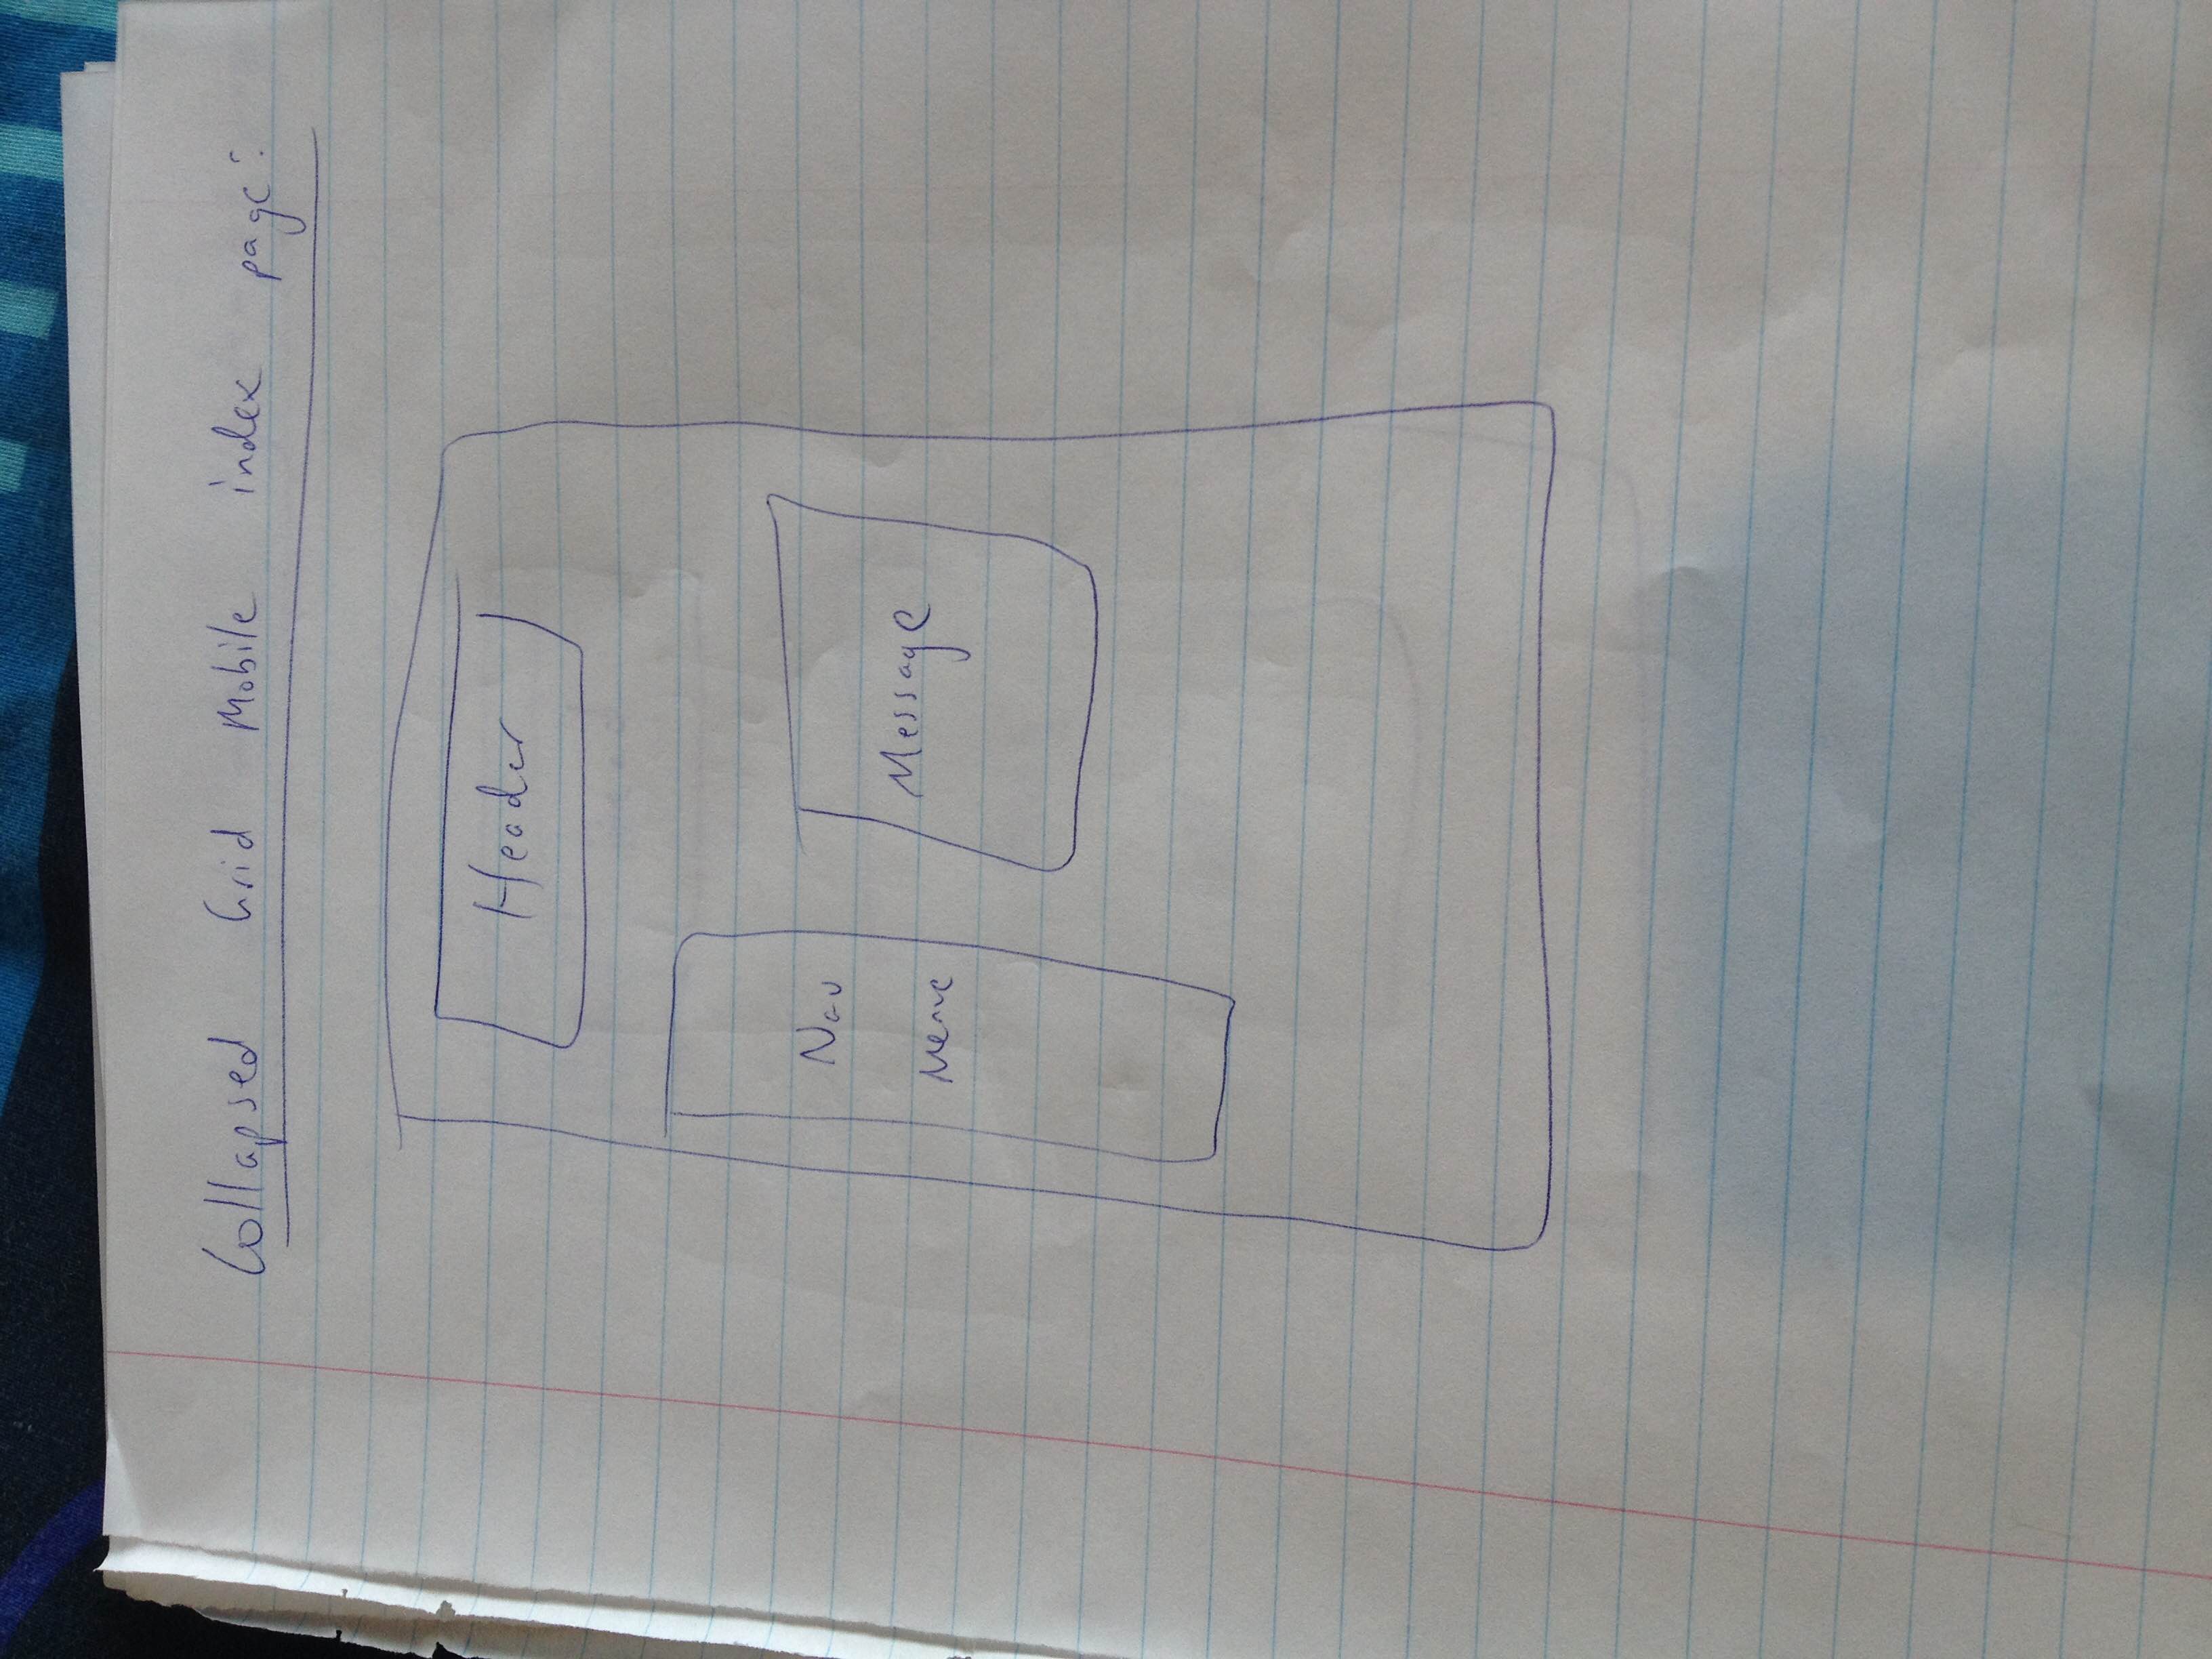 Collapsed Grid Mobile index page:
Header
Nav
Message